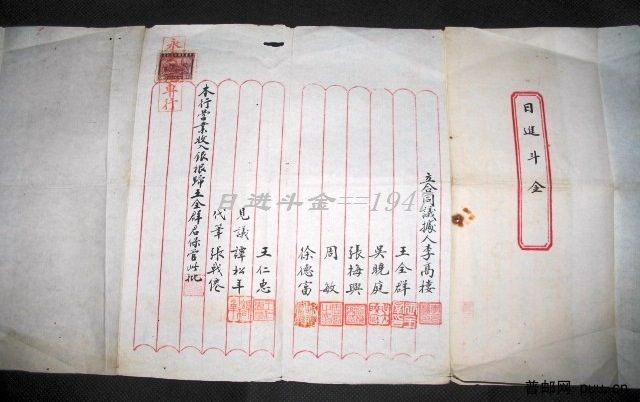 日進斗金
立合同議據人李高棲
王全群
吳曉庭
張梅興
周敏
徐德富
王仁忠
見議譚松年
代筆張戟倦
本行營業收入銀根歸王全群君保管此批
永
車行
日进斗金==194
普邮网 puu.cn